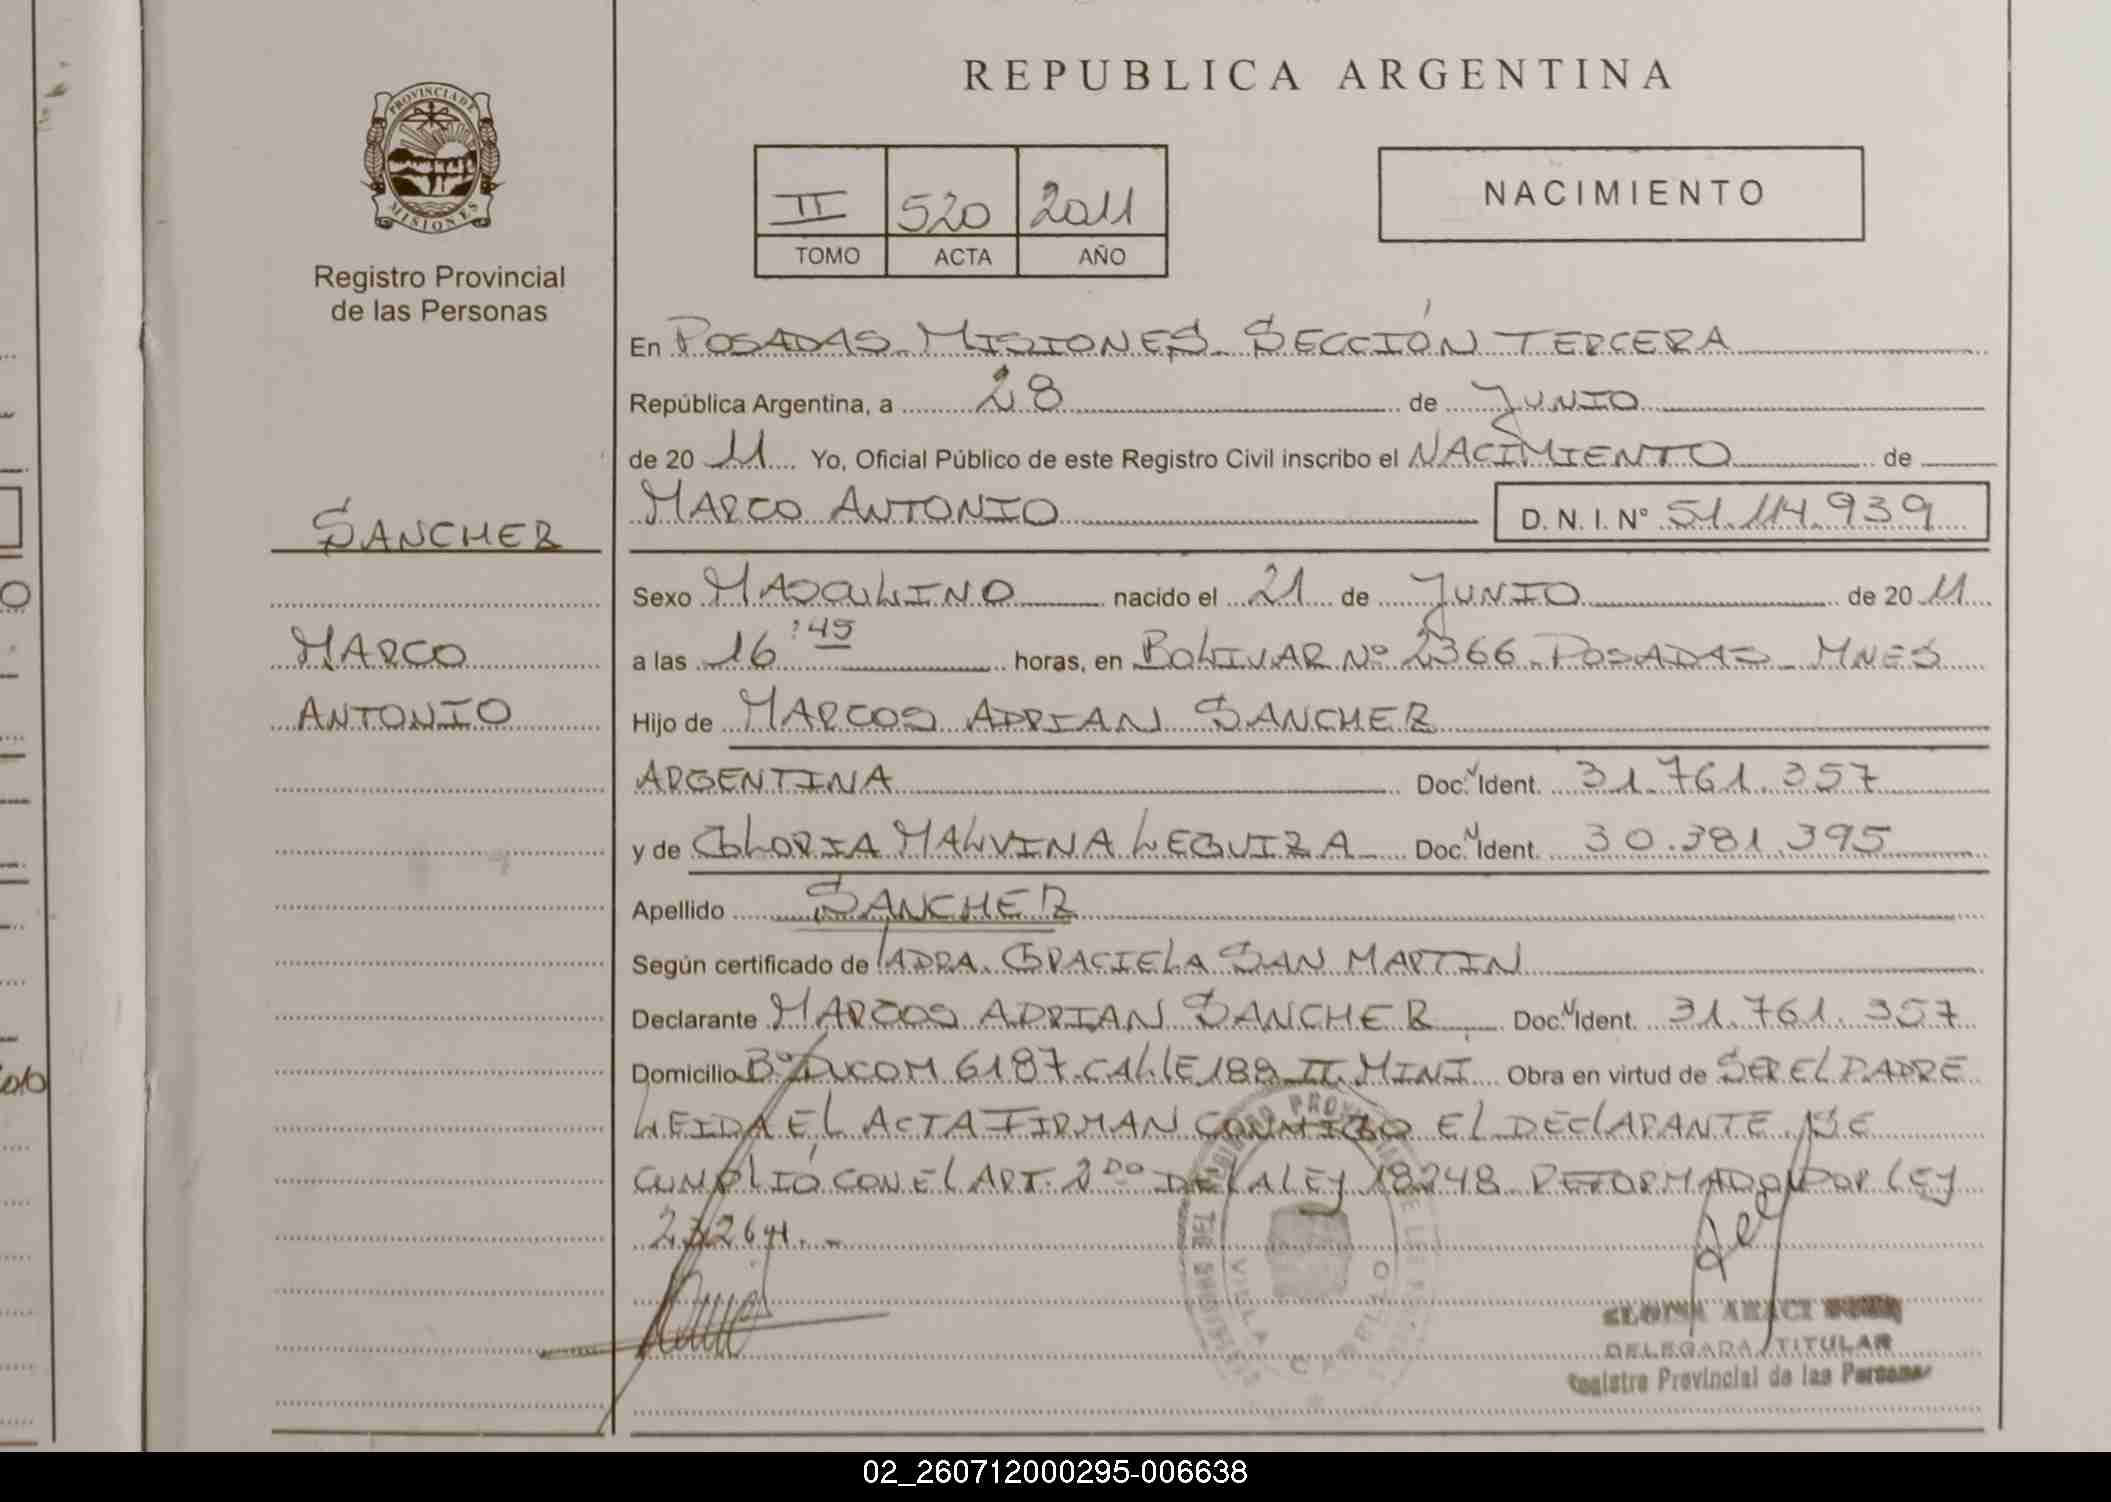 PROVINCIA DE
MISIONES
Registro Provincial
de las Personas
SANCHEZ
MARCO
ANTONIO
REPUBLICA ARGENTINA
II 520 2011
TOMO ACTA AÑO
NACIMIENTO
En POSADAS MISIONES SECCIÓN TERCERA
República Argentina, a 28 de JUNIO
de 20 11 Yo, Oficial Público de este Registro Civil inscribo el NACIMIENTO de
MARCO ANTONIO D. N. I. Nº 51.114.939
Sexo MASCULINO nacido el 21 de JUNIO de 20 11
a las 16:45 horas, en BOLIVAR Nº 2366 POSADAS MNES
Hijo de MARCOS ADRIAN SANCHEZ
ARGENTINA Doc. Ident. 31.761.357
y de GLORIA MALVINA LEGUIZA Doc. Ident. 30.381.395
Apellido SANCHEZ
Según certificado de LA DRA. GRACIELA SAN MARTIN
Declarante MARCOS ADRIAN SANCHEZ Doc. Ident. 31.761.357
Domicilio Bº DUCOM 6187 CALLE 189 II MINI Obra en virtud de SER EL PADRE
LEIDA EL ACTA FIRMAN CONMIGO EL DECLARANTE SE
CUMPLIÓ CON EL ART. 2DO DE LA LEY 18248 REFORMADO POR LEY
23264.-
VILLA CABELLO
DELEGADA TITULAR
Registro Provincial de las Personas
02_260712000295-006638